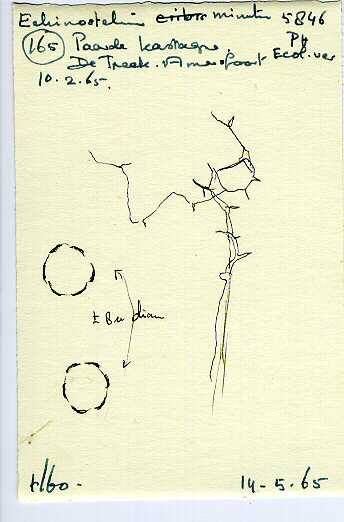 Echinostelium cribra minutum 5846
165 Paarde kastagne. Ph
De Treek. Amersfoort Ecol. ver
10.2.65.
± 8 u diam
14-5.65